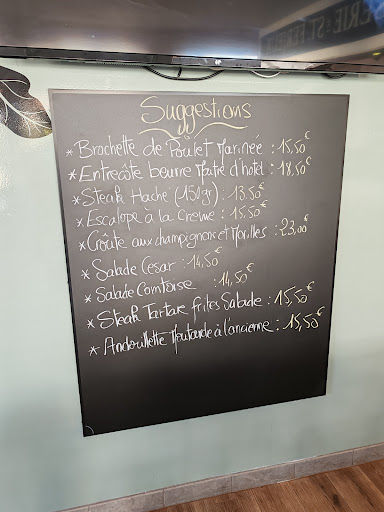 Suggestions
* Brochette de Poulet Marinée : 15,50€
* Entrecôte beurre Maître d'hôtel : 18,50€
* Steak Haché (150gr) : 13.50€
* Escalope à la Creme : 15.50€
* Croute aux champignons et Morilles : 23,00€
* Salade César : 14,50€
* Salade Comtoise : 14,50€
* Steak Tartare frites Salade : 15,50€
* Andouillette Moutarde à l'ancienne : 15,50€